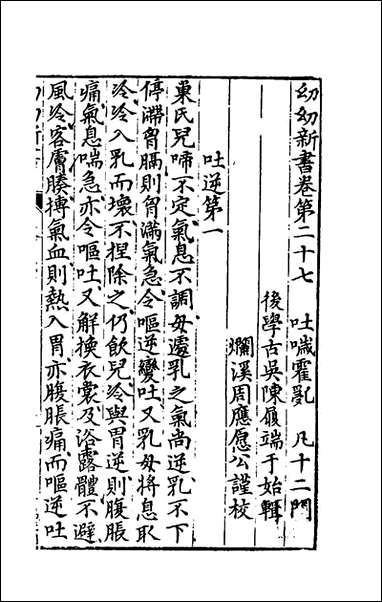 幼幼新書卷第二十七　吐噦霍亂　凡十二門
後學古吳陳履端于始輯
爛溪周應愿公謹校
吐逆第一
巢氏兒啼不定氣息不調母遽乳之氣尚逆乳不下
停滯胷膈則胷滿氣急令嘔逆變吐又乳母將息取
冷冷入乳而壞不揑除之仍飲兒冷與胃逆則腹脹
痛氣息喘急亦令嘔吐又解換衣裳及浴露體不避
風冷客膚腠搏氣血則熱入胃亦腹脹痛而嘔逆吐